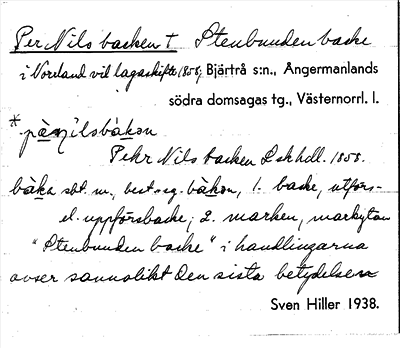 Per Nils backen † Stenbunden backe
i Norrland vid lagaskifte 1858, Bjärtrå s:n., Ångermanlands
södra domsagas tg., Västernorrl. l.
* pä̀rnìlsbàkan
Pehr Nils backen Lskhdl. 1858.
bàka sbt. m., best. sg. bàkan, 1. backe, utförs-
el. uppförsbacke; 2. marken, markytan
"Stenbunden backe" i handlingarna
avser sannolikt den sista betydelsen
Sven Hiller 1938.